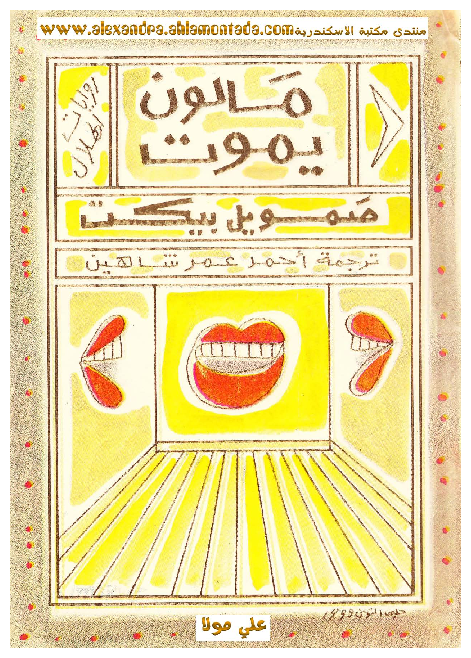 منتدى مكتبة الاسكندرية www.alexandra.ahlamontada.com
روايات الهلال
مالون
يموت
صمويل بيكت
ترجمة أحمد عمر شاهين
علي مولا